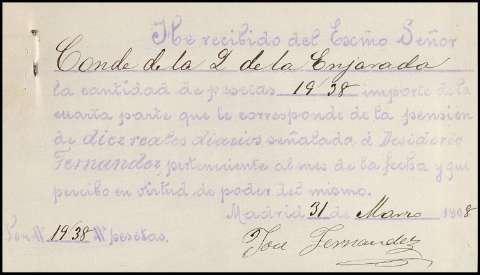 He recibido del Excmo Señor
Conde de la D. de la Enjarada
la cantidad de pesetas 19'38 importe de la
cuarta parte que le corresponde de la pensión
de diez reales diarios señalada á Desiderio
Fernandez, perteneciente al mes de la fecha y que
percibo en virtud de poder del mismo.
Madrid 31 de Marzo 1908
Son 19'38 pesetas.
José Fernandez